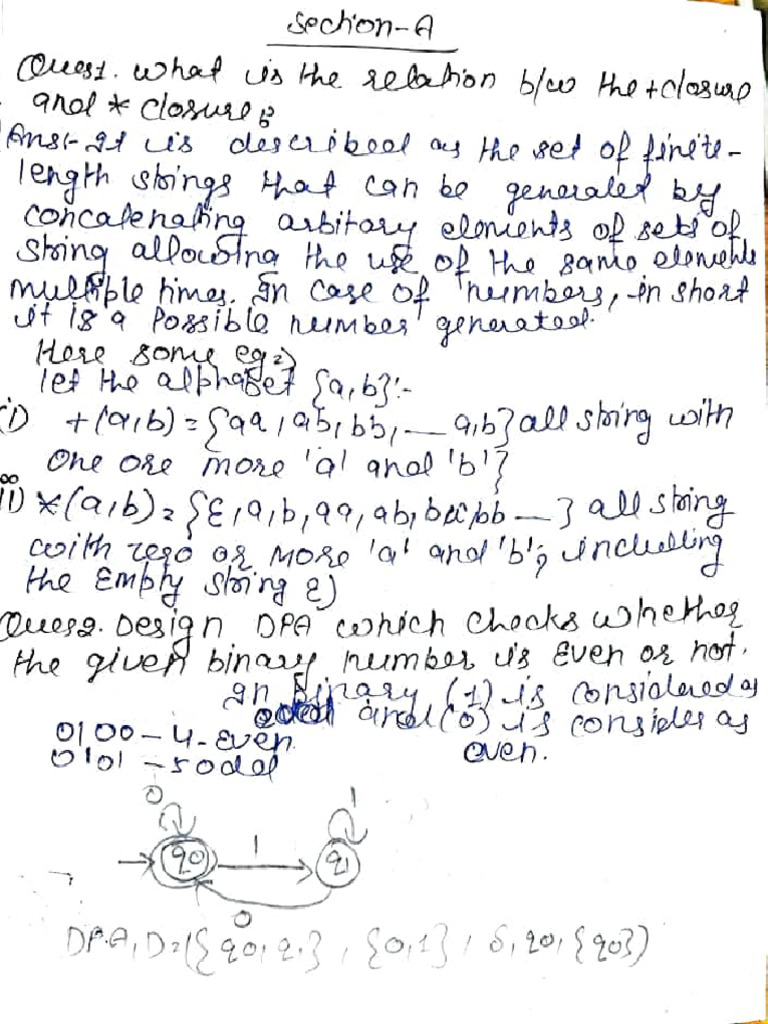 Section-A
Ques1. what is the relation b/w the + closure
and * closure?
Ans:- It is described as the set of finite-
length strings that can be generated by
concatenating arbitary elements of sets of
string allowing the use of the same elements
multiple times. In case of numbers, in short
it is a possible number generated.
Here some eg =)
let the alphabet {a,b}:-
i) +(a,b) = {aa, ab, bb, — a,b} all string with
One ore more 'a' and 'b'}
ii) *(a,b) = {ε, a, b, aa, ab, ba, bb — } all string
with zero or more 'a' and 'b', including
the Empty string ε)
Ques2. Design DFA which checks whether
the given binary number is Even or not.
In Binary (1) is considered as
odd and (0) is consider as
0100 - 4 - Even
even.
0101 - 5 odd
0 1
q0 1 q1
0
DFA, D = ({q0, q1}, {0,1}, δ, q0, {q0})